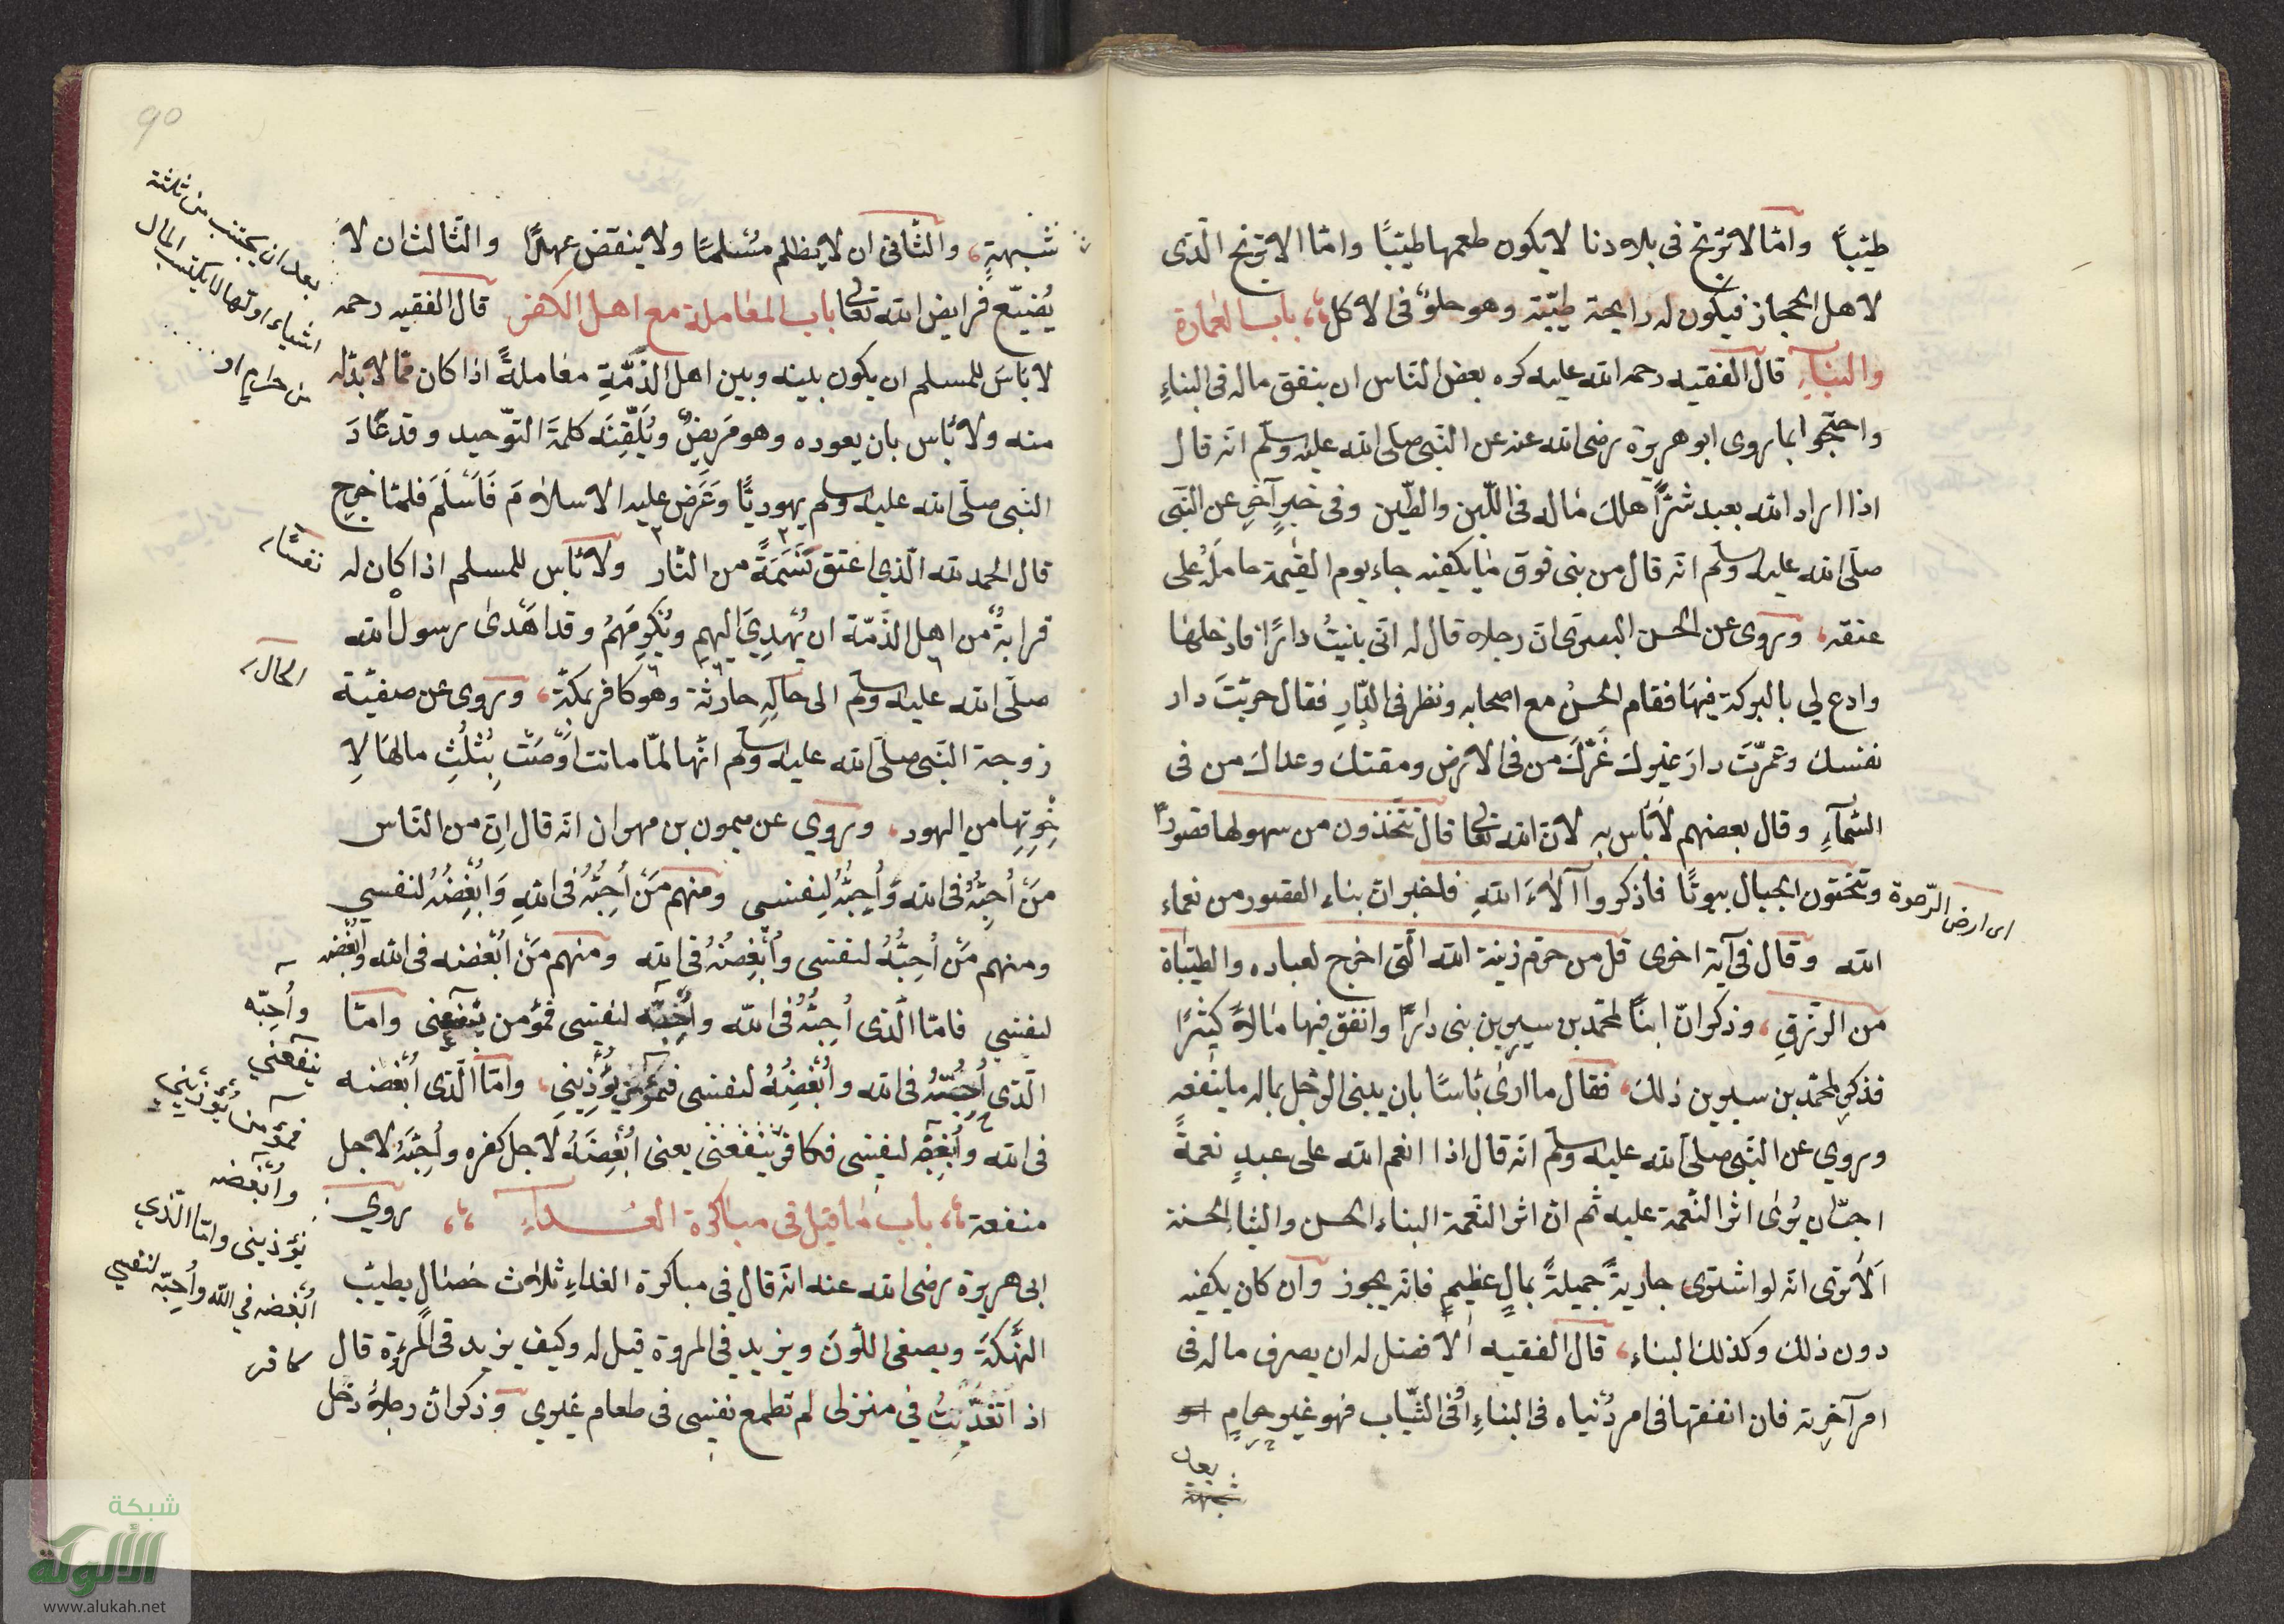 طيّباً وامّا لاترنج فى بلادنا لايكون طعمها طيّبًا وامّا الاترنج الّذى
لاهل الحجاز فيكون له رايحة طيّبة وهو حلوٌ فى الاكل باب العمارة
والبناء قال الفقيه رحمه الله عليه كره بعض النّاس ان ينفق ماله فى البناءِ
واحتجّوا بما روى ابو هريرة رضى الله عنه عن النّبى صلّى الله عليه وسلّم انّه قال
اذا اراد الله بعبد شرًّا هلك ماله فى اللّبن والطّين وفى خبرٍ آخر عن النّبى
صلّى الله عليه وسلّم انّه قال من بنى فوق ما يكفيه جاء يوم القيٰمة حاملهُ على
عنقه وروى عن الحسن البصرى انّ رجلا قال له انّى بنيتُ دارًا فادخلها
وادع لى بالبركة فيها فقام الحسنُ مع اصحابه ونظر فى الدّارِ فقال خربتَ دار
نفسك وعمّرتَ دارَ غيرك غَرَّكَ من فى الارض ومقتك وعداك من فى
السّمآءِ وقال بعضهم لاباس به لانّ الله تعالى قال تتّخذون من سهولها قصورًا
وتنحتون الجبال بيوتًا فاذكروا آلاءَ اللهِ فاخبر انّ بناء القصور من نعماء
اى ارض الرّخوة
الله وقال فى آية اخرى قل من حرّم زينة الله الّتى اخرج لعباده والطيّبات
من الرّزقِ وذكر انّ ابنًا لمحمّد بن سيرين بنى دارًا وانفق فيها مالاً كثيرًا
فذكر لمحمّد بن سيرين ذلك فقال ما ارى باسًا بان يبنى الرّجل بماله ما ينفعه
وروي عن النّبى صلّى الله عليه وسلّم انّه قال اذا انعم الله على عبدٍ نعمةً
احبّ ان يُرى اثر النّعمة عليه ثم انّ اثر النّعمة البناء الحسن والثياب الحسنة
اَلاترى انّه لو اشترى جاريةً جميلةً بمالٍ عظيمٍ فانّه يجوز وان كان يكفيه
دون ذلك وكذلك البناء قال الفقيه الافضل له ان يصرف ماله فى
امر آخرته فان انفقها فى امر دُنياه فى البناءِ او فى الثّياب فهو غير حرامٍ
بعد
90
شبهةٍ والثّانى ان لايظلم مسُلمًا ولاينقض عهدًا والثّالث ان لا
يُضيّع فرايض الله تعالى باب المعاملة مع اهل الكفر قال الفقيه رحمه
لاباسَ للمسلم ان يكون بينه وبين اهل الذّمّةِ معاملةً اذا كان ممّا لا بدّ له
منه ولا باس بان يعوده وهو مَريضٌ ويُلَقِّنَه كلمةَ التّوحيد وقد عَادَ
النّبى صلّى الله عليه وسلم يهوديًّا وعَرَض عليه الاسلامَ فَاَسْلَمَ فلمّا خرج
قال الحمد لله الّذي اعتق نَسَمَةً من النّار ولا باس للمسلم اذا كان له
قرابةُ من اهل الذّمّة ان يُهدِيَ اليهم ويُكرِمَهُم وقد اَهْدىٰ رسول الله
صلّى الله عليه وسلّم الى خاله حارثة وهو كافر بمكّة وروى عن صفيّة
زوجة النّبى صلّى الله عليه وسلّم انّها لمّا ماتت اَوْصَتْ بِثُلُثِ مالها لِاِ
خْوِتِها من اليهود وروي عن ميمون بن مهران انّه قال اِنّ من النّاس
مَنْ اُحِبُّهُ فى الله وَاُحِبُّهُ لِنفسى ومنهم مَنْ اُحِبُّهُ فى اللهِ وَاُبْغِضُهُ لنفسي
ومنهم مَنْ اُحِبُّهُ لنفسى واُبْغِضُهُ فى الله ومنهم مَنْ اُبْغضه فى الله واُبْغضه
لنفسي فامّا الّذى اُحِبُّهُ فى اللّه واُحِبُّه لنفسى فمؤمن ينفعنى وامّا
الّذى اُحِبُّهُ فى الله واُبْغِضُهُ لنفسى فمؤمن يُؤْذِينِي وامّا الّذى اُبْغضه
فى الله واُبْغِضُه لنفسى فكافر ينفعنى يعنى اُبْغِضُهُ لاجل كفره واُحِبُّهُ لاجل
منفعة باب ما قيل فى مباكرة الغداءِ روي
ابى هريرة رضى الله عنه انّه قال في مباكرة الغداءِ ثلاث خصال يطيّب
النَّكهَةَ ويصفى اللّونَ ويزيد في المروة قيل له وكيف يزيد فى المُروّة قال
اذا تَغَدَّيتُ في منزلى لم تطمع نفسى فى طعام غيرى وذكر انّ رجلاً دخل
بعد ان يجتنب من ثلثة
اشياء اوّلها لا يكتسب المال
من حرامٍ او
نفسًا
الحال
واُحِبّه
ينفعني
فمؤمن يُؤْذيني
واُبْغضه
يؤذينى وامّا الّذي
اُبْغضه في اللّه واُحِبّه لنفسى
كافر
شبكة
الألوكة
www.alukah.net